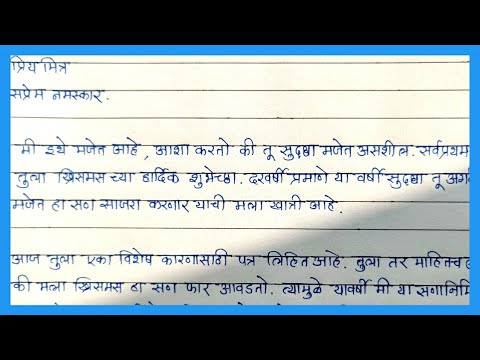 प्रिय मित्र
सप्रेम नमस्कार.
मी इथे मजेत आहे, आशा करतो की तू सुद्धा मजेत असशील. सर्वप्रथम
तुला ख्रिसमस च्या हार्दिक शुभेच्छा. दरवर्षी प्रमाणे या वर्षी सुद्धा तू अग
मजेत हा सण साजरा करणार याची मला खात्री आहे.
आज तुला एका विशेष कारणासाठी पत्र लिहित आहे. तुला तर माहितच
की मला ख्रिसमस हा सण फार आवडतो. त्यामुळे यावर्षी मी या सणानिमि